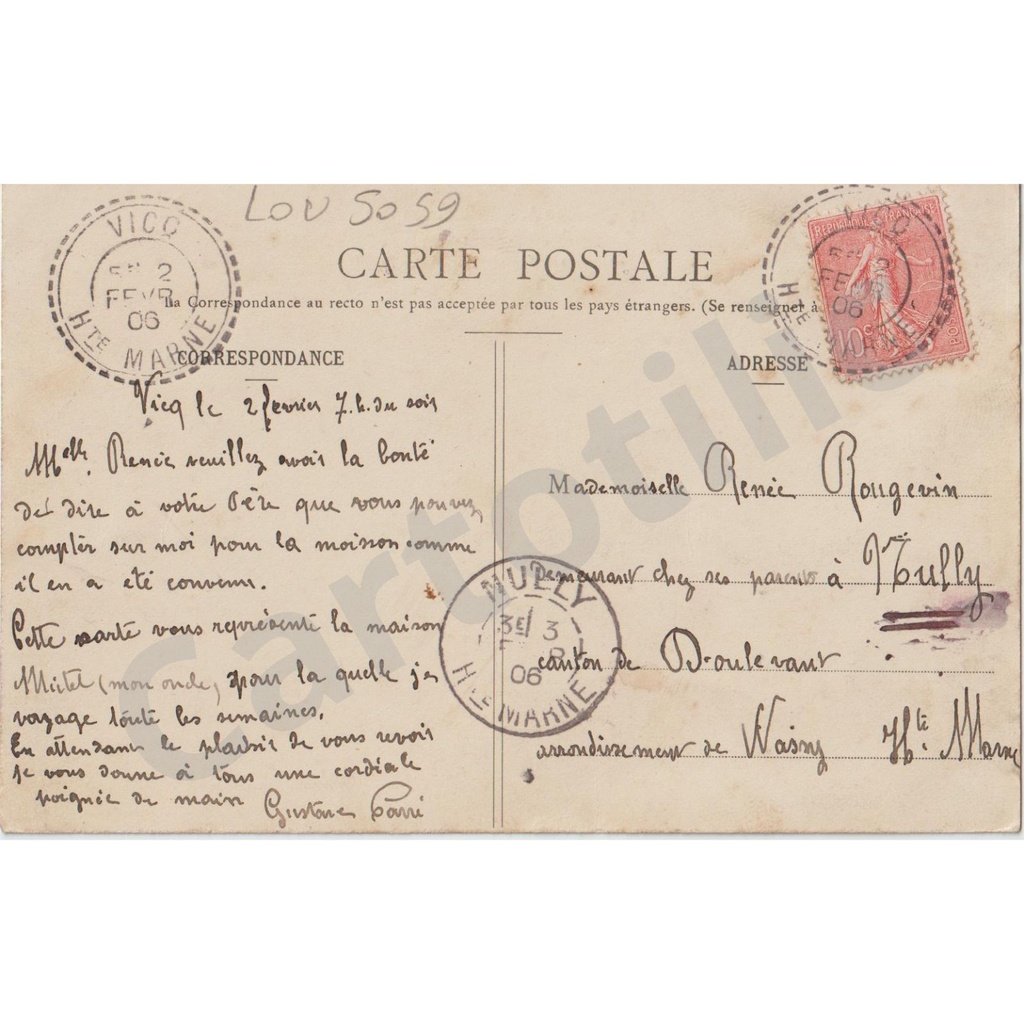 LOU 5059
VICQ
2
FEVR
06
Hte MARNE
CARTE POSTALE
La Correspondance au recto n'est pas acceptée par tous les pays étrangers. (Se renseigner à
REPUBLIQUE FRANÇAISE
10c
VICQ
FEVR
06
Hte MARNE
CORRESPONDANCE
Vicq le 2 fevrier 7.h.du soir
Melle Renée veuillez avoir la bonté
de dire à votre Père que vous pouvez
compter sur moi pour la moisson comme
il en a été convenu.
Cette carte vous représente la maison
(mon oncle) pour la quelle je
voyage toute les semaines.
En attendant le plaisir de vous revoir
je vous donne à tous une cordiale
poignée de main Gustave
ADRESSE
Mademoiselle Renée Rougevin
Demeurant chez ses parents à Nully
canton de Doulevant
arrondissement de Wassy Hte Marne
NULLY
3E 3
06
Hte MARNE
Cartotilie